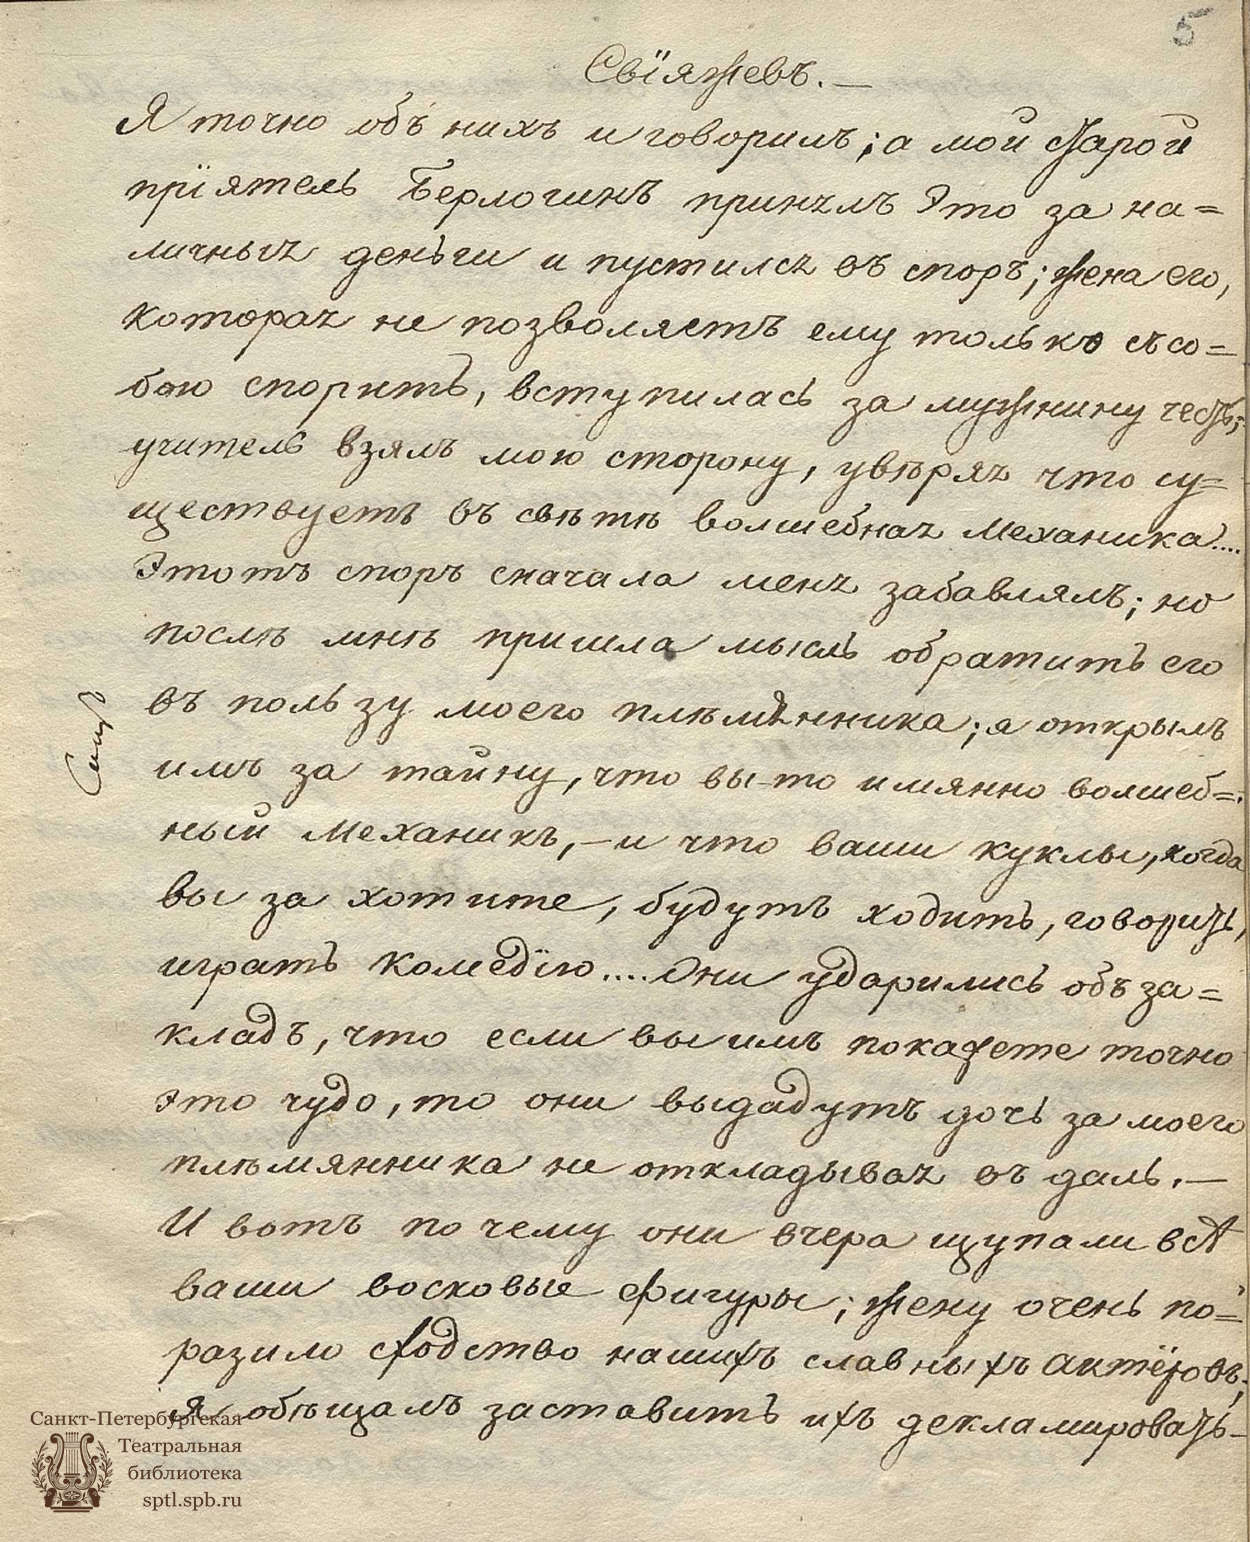 5
Свїяжевъ.—
Я точно объ нихъ и говорилъ; а мой старой
прїятель Берлогинъ принялъ это за на=
личныя деньги и пустился въ споръ; жена его,
которая не позволяетъ ему только съ со=
бою спорить, вступилась за мужнину честь;
учитель взялъ мою сторону, увѣряя что су=
ществуетъ въ свѣтѣ волшебная механика....
Этотъ споръ сначала меня забавлялъ; но
послѣ мнѣ пришла мысль обратить его
въ пользу моего племянника; я открылъ
имъ за тайну, что вы-то имянно волшеб=
ный механикъ, — и что ваши куклы, когда
вы за хотите, будутъ ходить, говорить,
играть комедїю.... Они ударились объ за=
кладъ, что если вы имъ покажете точно
это чудо, то они выдадутъ дочь за моего
плѣмянника не откладывая въ даль. —
И вотъ по чему они вчера щупали всѣ
ваши восковые фигуры; жену очень по=
разило сходство нашихъ славныхъ актёровъ;
я обѣщалъ заставить ихъ декламировать—
Санкт-Петербургская
Театральная
библиотека
sptl.spb.ru